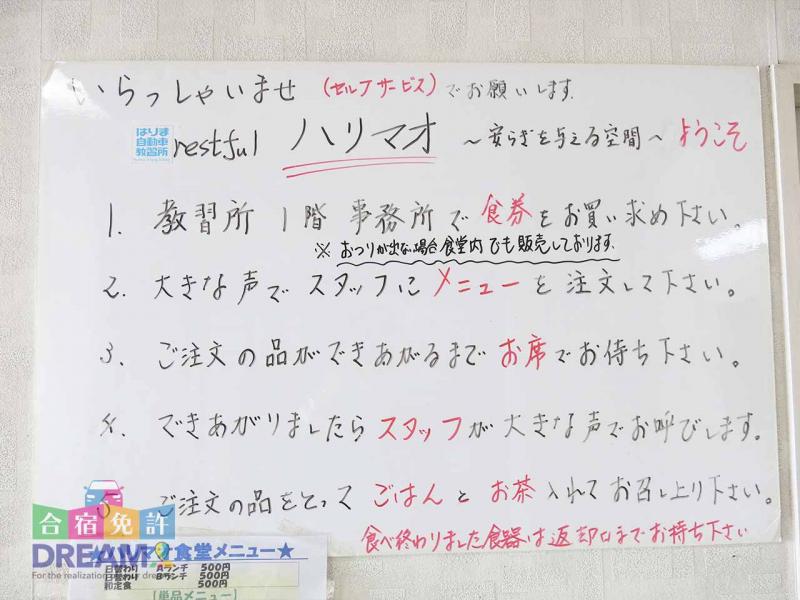 いらっしゃいませ (セルフサービス)でお願いします.
はりま
自動車
教習所
restful ハリマオ ～安らぎを与える空間～ ようこそ
1. 教習所 1階 事務所で食券をお買い求め下さい。
※ おつりが出ない場合食堂内でも販売しております.
2. 大きな声でスタッフにメニューを注文して下さい。
3. ご注文の品ができあがるまでお席でお待ち下さい。
4. できあがりましたらスタッフが大きな声でお呼びします。
5 ご注文の品をとって ごはんとお茶入れてお召し上り下さい。
食べ終わりました食器は返却口までお持ち下さい
合宿免許
DREAM
For the realization your dre
食堂メニュー★
日替わり Aランチ 500円
日替わり Bランチ 500円
和定食 500円
【単品メニュー】